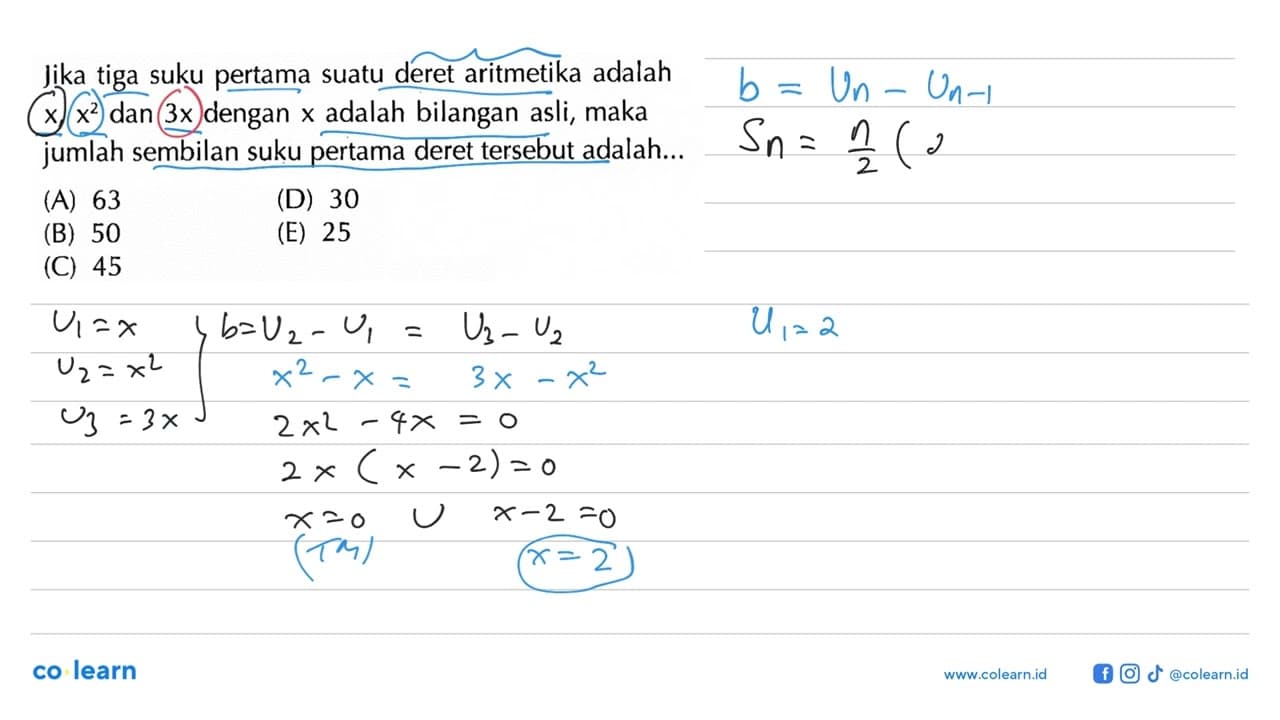 Jika tiga suku pertama suatu deret aritmetika adalah
x, x² dan 3x dengan x adalah bilangan asli, maka
jumlah sembilan suku pertama deret tersebut adalah...
(A) 63 (D) 30
(B) 50 (E) 25
(C) 45
b = Un - Un-1
Sn = n/2 (
U1 = x
U2 = x²
U3 = 3x
b = U2 - U1 = U3 - U2
x² - x = 3x - x²
2x² - 4x = 0
2x (x - 2) = 0
x = 0 U x - 2 = 0
(TM) x = 2
U1 = 2
co learn
www.colearn.id @colearn.id